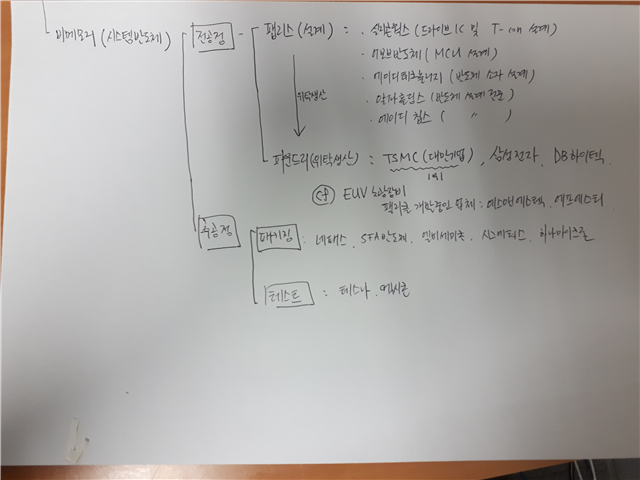 비메모리 (시스템반도체)
전공정 - 팹리스 (설계) : · 실리콘웍스 (드라이브 IC 및 T-con 설계)
· 어보브반도체 (MCU 설계)
· 에이디테크놀러지 (반도체 소자 설계)
위탁생산
· 알파홀딩스 (반도체 설계 전문)
· 에이디 칩스 ( 〃 )
파운드리(위탁생산) : TSMC (대만기업), 삼성전자, DB하이텍
1위
cf) EUV 노광장비
펠리클 개발중인 업체 : 에스앤에스텍, 에프에스티
후공정 패키징 : 네패스, SFA반도체, 엘비세미콘, 시그네틱스, 하나마이크론
테스트 : 테스나, 에이티